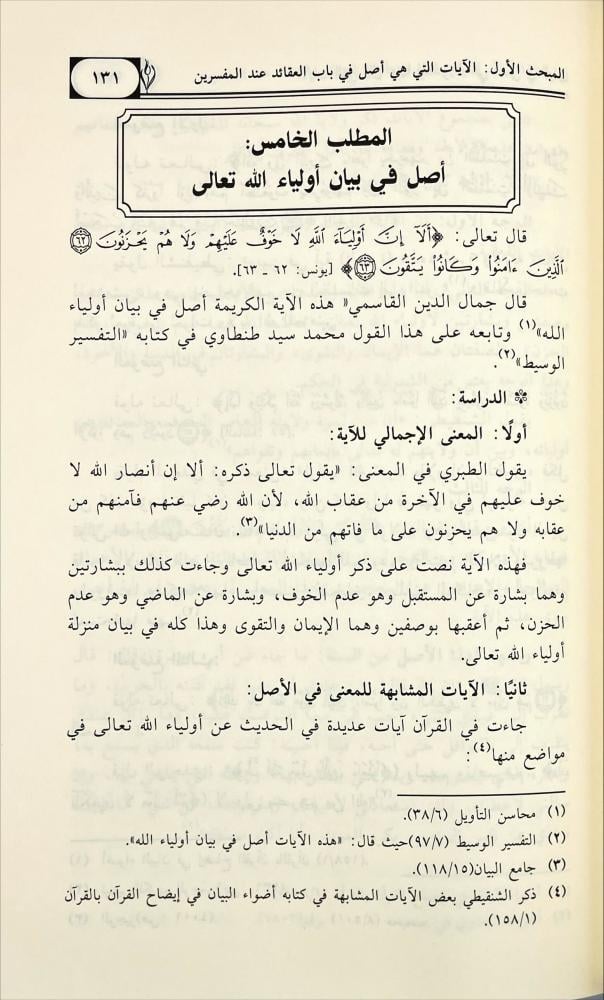 المبحث الأول: الآيات التي هي أصل في باب العقائد عند المفسرين
١٣١
المطلب الخامس:
أصل في بيان أولياء الله تعالى
قال تعالى: ﴿أَلَآ إِنَّ أَوْلِيَآءَ ٱللَّهِ لَا خَوْفٌ عَلَيْهِمْ وَلَا هُمْ يَحْزَنُونَ ٦٢
ٱلَّذِينَ ءَامَنُوا۟ وَكَانُوا۟ يَتَّقُونَ ٦٣﴾ [يونس: ٦٢ ـ ٦٣].
قال جمال الدين القاسمي« هذه الآية الكريمة أصل في بيان أولياء
الله»(١) وتابعه على هذا القول محمد سيد طنطاوي في كتابه «التفسير
الوسيط»(٢).
الدراسة:
أولًا: المعنى الإجمالي للآية:
يقول الطبري في المعنى: «يقول تعالى ذكره: ألا إن أنصار الله لا
خوف عليهم في الآخرة من عقاب الله، لأن الله رضي عنهم فآمنهم من
عقابه ولا هم يحزنون على ما فاتهم من الدنيا»(٣).
فهذه الآية نصت على ذكر أولياء الله تعالى وجاءت كذلك ببشارتين
وهما بشارة عن المستقبل وهو عدم الخوف، وبشارة عن الماضي وهو عدم
الحزن، ثم أعقبها بوصفين وهما الإيمان والتقوى وهذا كله في بيان منزلة
أولياء الله تعالى.
ثانيًا: الآيات المشابهة للمعنى في الأصل:
جاءت في القرآن آيات عديدة في الحديث عن أولياء الله تعالى في
مواضع منها(٤):
(١) محاسن التأويل (٣٨/٦).
(٢) التفسير الوسيط (٩٧/٧)حيث قال: «هذه الآيات أصل في بيان أولياء الله».
(٣) جامع البيان(١١٨/١٥).
(٤) ذكر الشنقيطي بعض الآيات المشابهة في كتابه أضواء البيان في إيضاح القرآن بالقرآن
(١٥٨/١).